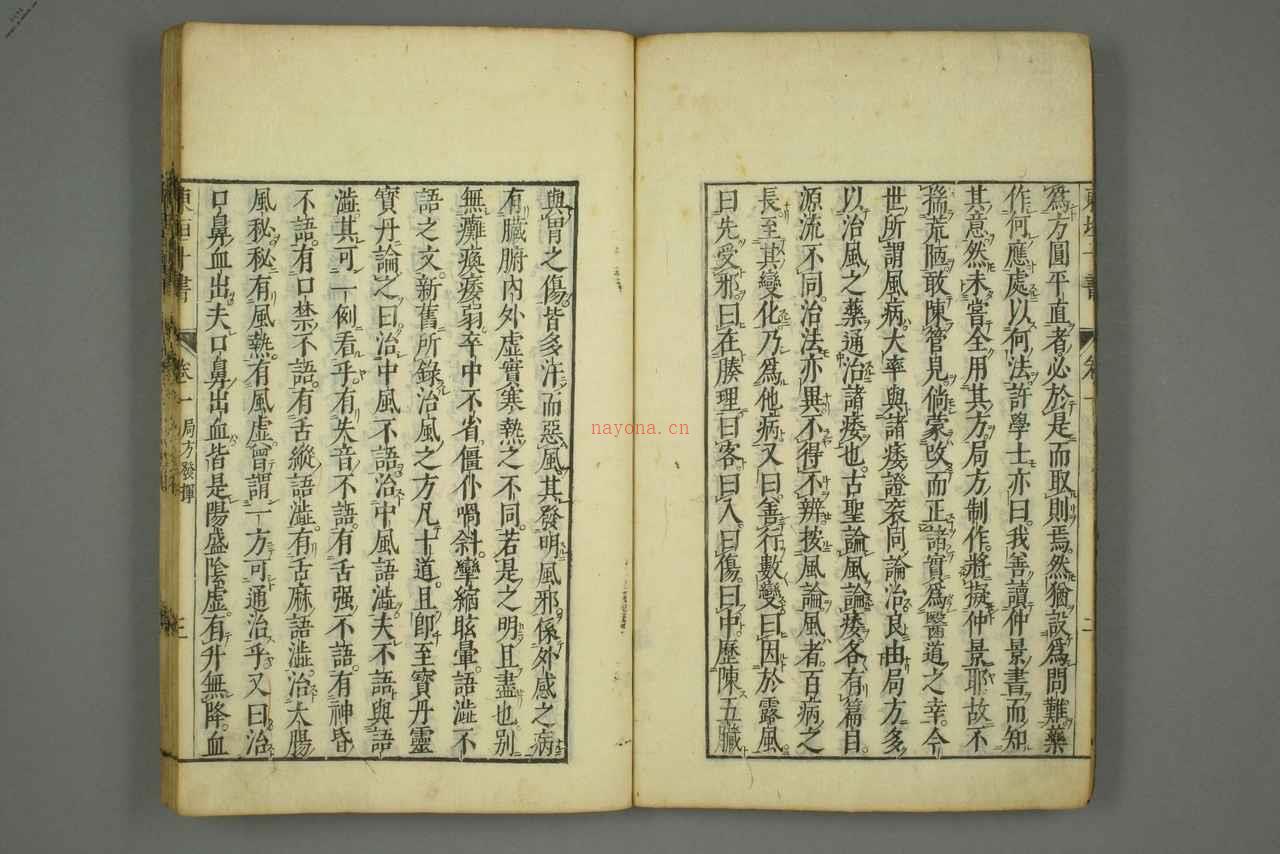 爲方圓平直者必於是而取則焉然猶設爲問難藥
作何應處以何法許學士亦曰我善讀仲景書而知
其意然未嘗全用其方局方制作將擬仲景耶故不
揣荒陋敢陳管見倘蒙改而正諸實爲醫道之幸今
世所謂風病大率與諸痿證衮同論治良由局方多
以治風之藥通治諸痿也古聖論風論痿各有篇目
源流不同治法亦異不得不辨按風論風者百病之
長至其變化乃爲他病又曰善行數變曰因於露風
曰先受邪曰在腠理曰客曰入曰傷曰中歷陳五臟
二
與胃之傷皆多汗而惡風其發明風邪係外感之病
有臟腑內外虛實寒熱之不同若是之明且盡也別
無癱瘓痿弱卒中不省僵仆喎斜攣縮眩暈語澁不
語之文新舊所錄治風之方凡十道且卽至寶丹靈
寶丹論之曰治中風不語治中風語澁夫不語與語
澁其可一例看乎有失音不語有舌强不語有神昏
不語有口禁不語有舌縱語澁有舌麻語澁治大腸
風秘秘有風熱有風虛曾謂一方可通治乎又曰治
口鼻血出夫口鼻出血皆是陽盛陰虛有升無降血
東垣十書 卷一 局方發揮 三
nayona.cn